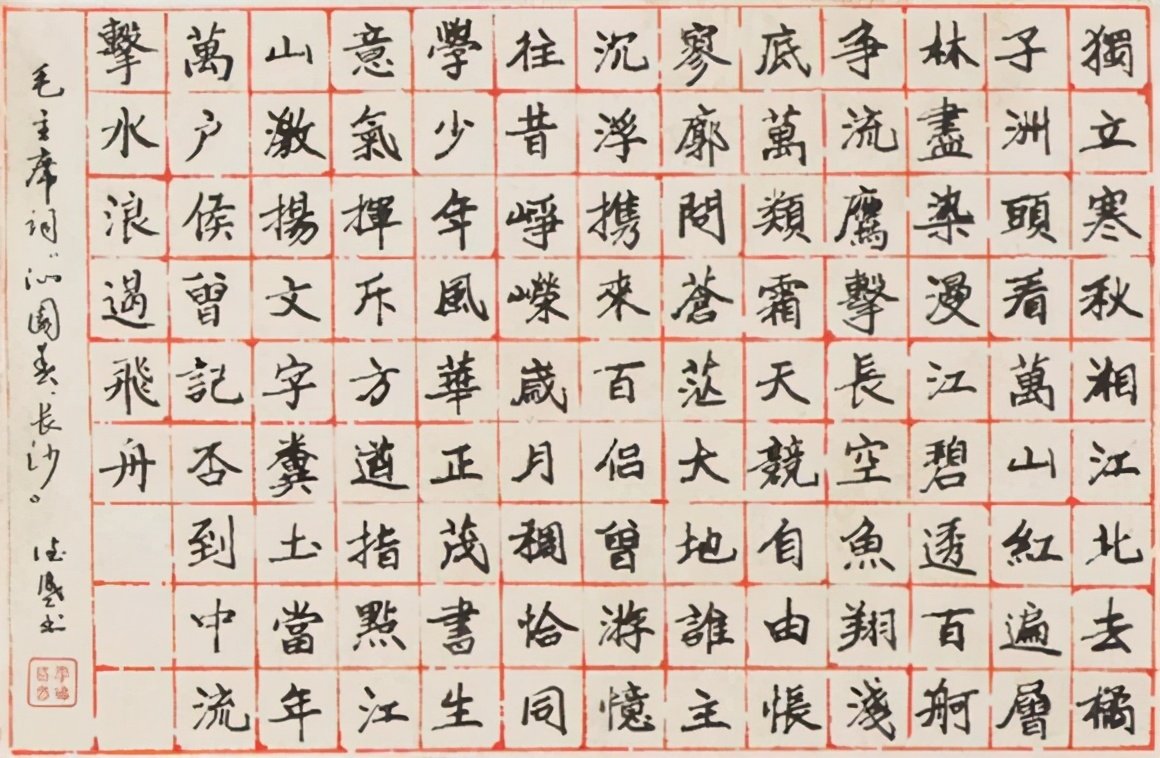 獨立寒秋湘江北去橘
子洲頭看萬山紅遍層
林盡染漫江碧透百舸
争流鷹擊長空魚翔淺
底萬類霜天競自由悵
寥廓問蒼茫大地誰主
沉浮携來百侣曾游憶
往昔崢嶸歲月稠恰同
學少年風華正茂書生
意氣揮斥方遒指點江
山激揚文字糞土當年
萬户侯曾記否到中流
擊水浪遏飛舟
毛主席词“沁園春·长沙”。 书